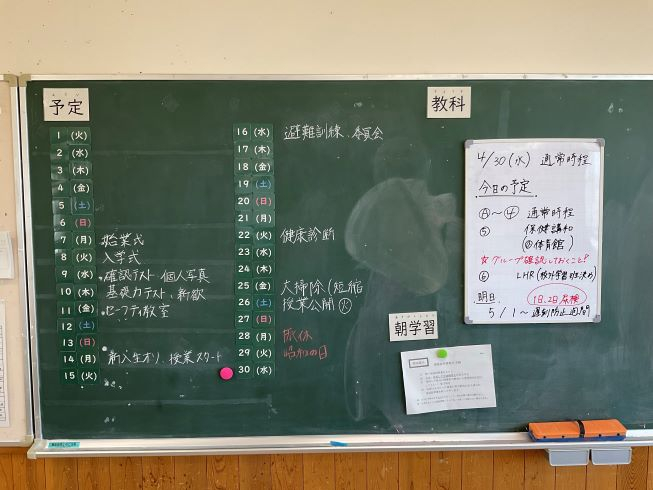 予定
1 (火)
2 (水)
3 (木)
4 (金)
5 (土)
6 (日)
7 (月) 始業式
8 (火) 入学式
9 (水) 確認テスト・個人写真
10 (木) 基礎力テスト・新歓
11 (金) セーフティ教室
12 (土)
13 (日)
14 (月) 新入生オリ、授業スタート
15 (火)
16 (水) 避難訓練、委員会
17 (木)
18 (金)
19 (土)
20 (日)
21 (月)
22 (火) 健康診断
23 (水)
24 (木)
25 (金) 大掃除(短縮
26 (土) 授業公開(火)
27 (日)
28 (月) 振休
29 (火) 昭和の日
30 (水)
教科
4/30(水) 通常時程
今日の予定
~④ 通常時程
⑤ 保健講和
体育館)
☆グループ確認しておくこと!
⑥ LHR(校外学習
明日 1日、2日尿検
5/1~遅刻防止週間
朝学習